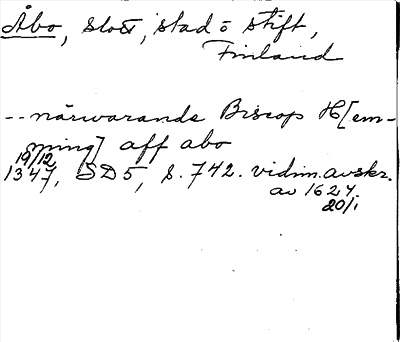 Åbo, slott, stad o stift,
Finland
-- närwarande Biscop H[em-
ming] aff abo
19/12
1347, SD 5, s. 742. vidim. avskr.
av 1627.
20/1